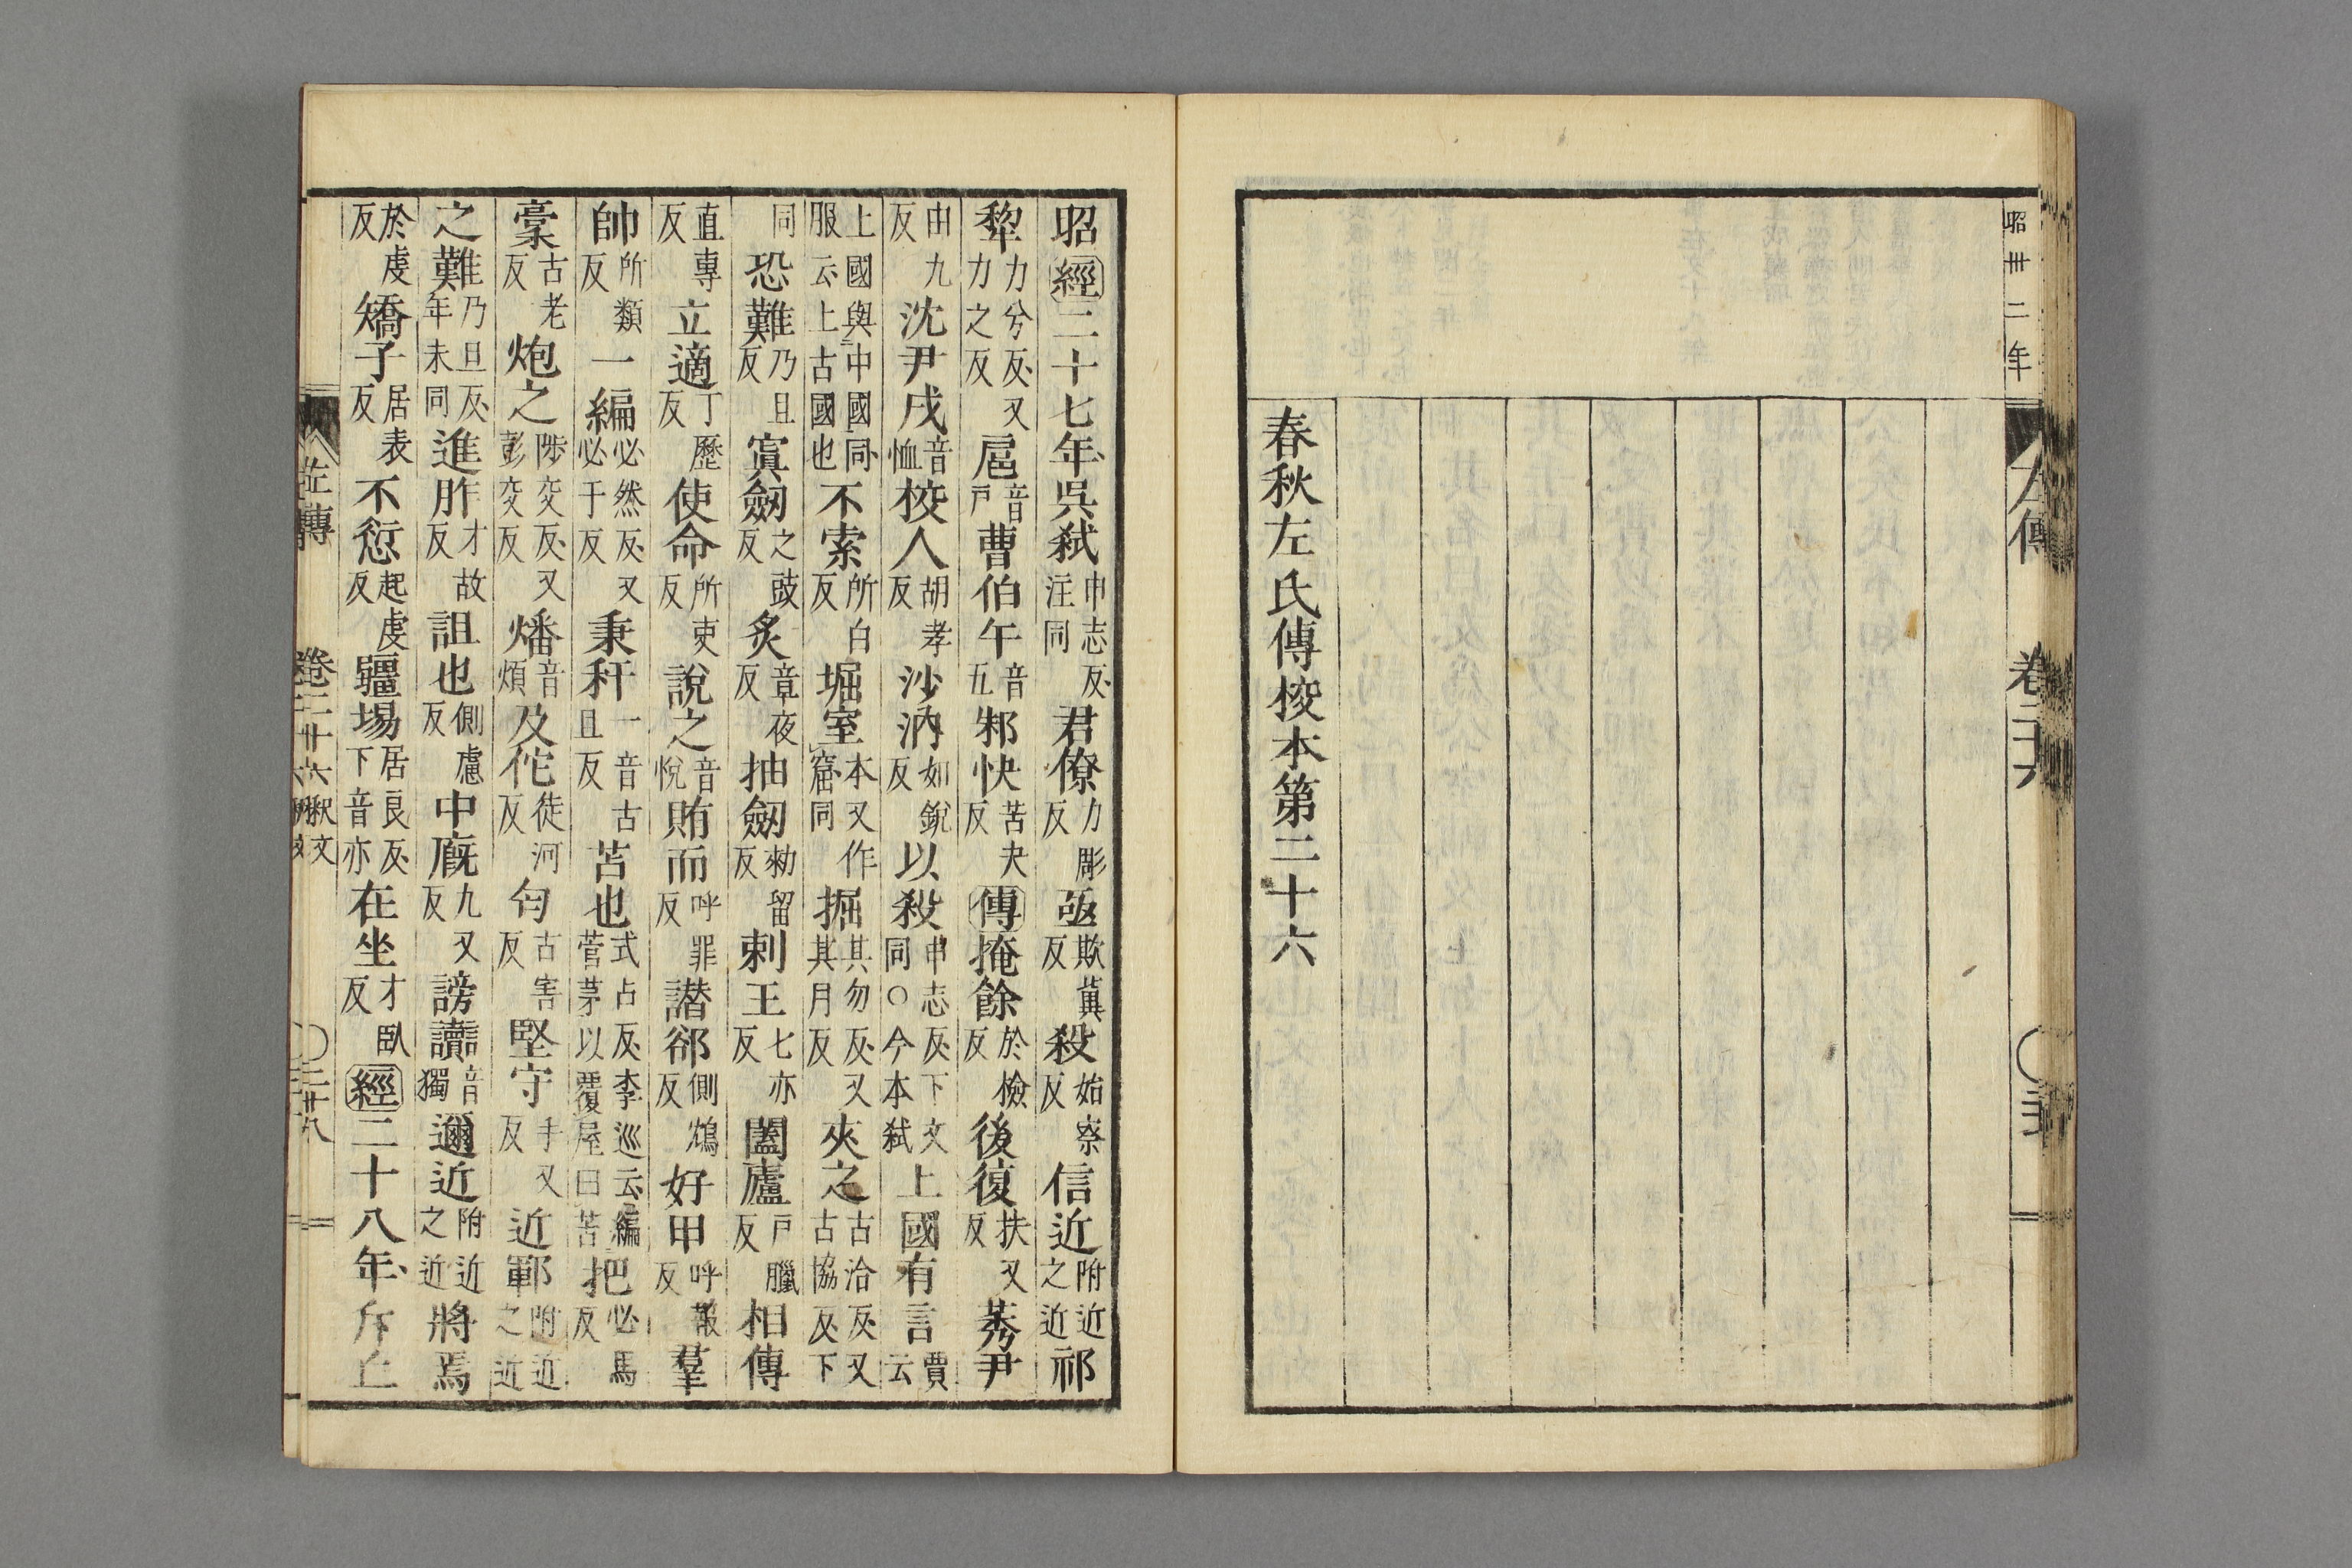 昭卅二年
左傳　卷二十六
春秋左氏傳挍本第二十六
昭經二十七年、吳弒申志反、注同君僚力彫反亟欺冀反殺始察反信近附近之近祁
犂力兮反、又力之反扈音戶曹伯午音五邾快苦夬反傳掩餘於檢反後復扶又反莠尹
由九反沈尹戌音恤挍人胡孝反沙汭如銳反以殺申志反、下文同○今本弒上國有言賈云
上國與中國同、服云上古國也不索所白反堀室本又作窟、同掘其勿反、又其月反夾之古洽反、又古協反、下
同恐難乃旦反寘劒之豉反炙章夜反抽劒勑留反刺王七亦反闔廬戶臘反相傳
直專反立適丁歷反使命所吏反說之音悅賄而呼罪反譖郤側鴆反好甲呼報反羣
帥所類反一編必然反、又必千反秉秆一音古且反苫也式占反、李巡云、編菅茅以覆屋曰苫把必馬反
槀古老反炮之陟交反、又彭交反燔音煩及佗徒河反匄古害反堅守手又反近鄆附近之近
之難乃旦反、年末同進胙才故反詛也側慮反中廐九又反謗讟音獨邇近附近之近將焉
於虔反矯子居表反不愆起虔反疆場居良反、下音亦在坐才臥反經二十八年、斥丘
左傳　卷二十六　釈文